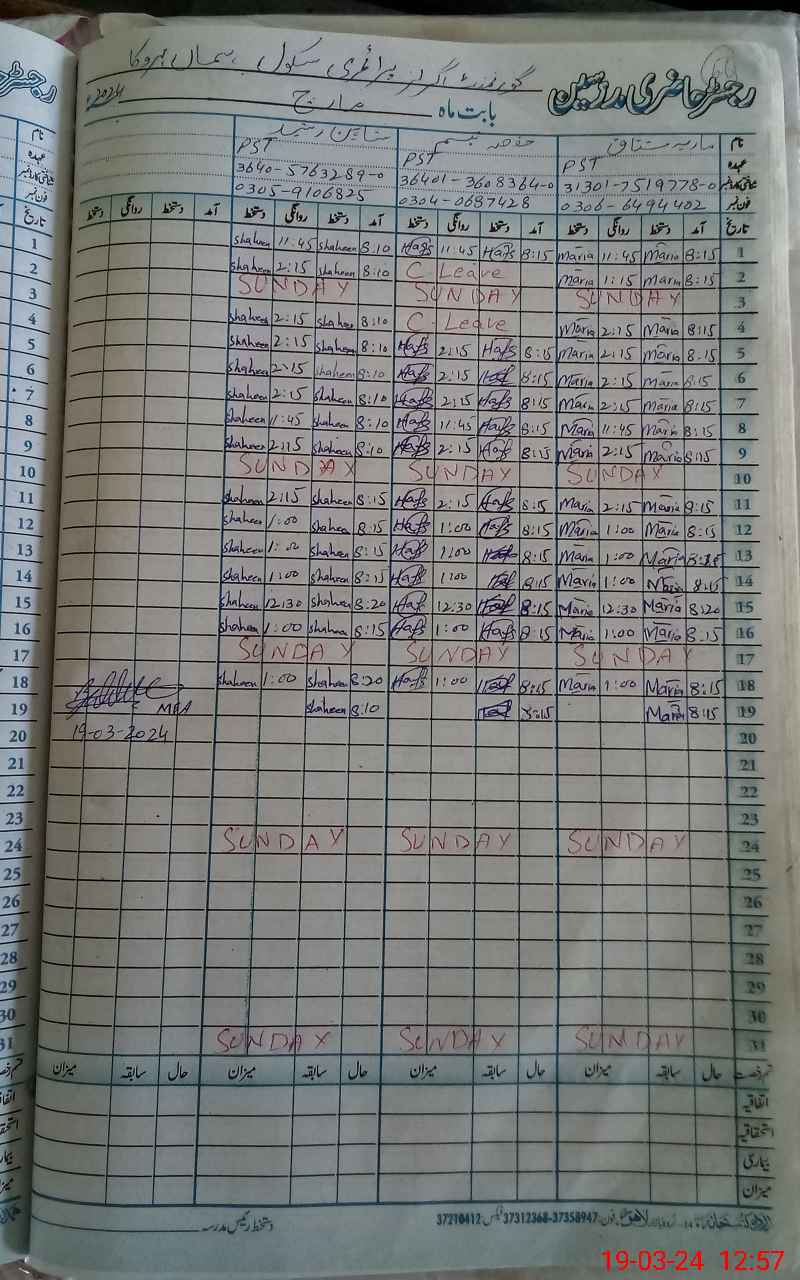 رجسٹر حاضری مدرسین
گورنمنٹ گرلز پرائمری سکول
بابت ماہ مارچ 2024ء
نام ماریہ مشتاق حفصہ شاہین رشید
عہدہ PST PST PST
شناختی کارڈ نمبر 31301-7519778-0 36401-3608364-0 3640-5763289-0
فون نمبر 0306-6494402 0304-0687428 0305-9106825
تاریخ آمد دستخط روانگی دستخط آمد دستخط روانگی دستخط آمد دستخط روانگی دستخط آمد دستخط روانگی دستخط
1 8:15 Maria 11:45 Maria 8:15 Hafs 11:45 Hafs 8:10 shaheen 11:45 shaheen
2 8:15 Maria 1:15 Maria C Leave 8:10 shaheen 2:15 shaheen
3 SUNDAY SUNDAY SUNDAY
4 8:15 Maria 2:15 Maria C-Leave 8:10 shaheen 2:15 shaheen
5 8:15 Maria 2:15 Maria 8:15 Hafs 2:15 Hafs 8:10 shaheen 2:15 shaheen
6 8:15 Maria 2:15 Maria 8:15 2:15 Hafs 8:10 shaheen 2:15 shaheen
7 8:15 Maria 2:15 Maria 8:15 Hafs 2:15 Hafs 8:10 shaheen 2:15 shaheen
8 8:15 Maria 11:45 Maria 8:15 Hafs 11:45 Hafs 8:10 shaheen 11:45 shaheen
9 8:15 Maria 2:15 Maria 8:15 Hafs 2:15 Hafs 8:10 shaheen 2:15 shaheen
10 SUNDAY SUNDAY SUNDAY
11 8:15 Maria 2:15 Maria 8:15 Hafs 2:15 Hafs 8:15 shaheen 2:15 shaheen
12 8:15 Maria 1:00 Maria 8:15 Hafs 1:00 Hafs 8:15 shaheen 1:00 shaheen
13 Maria 1:00 Maria 8:15 1:00 Hafs 8:15 shaheen 1:00 shaheen
14 8:15 Maria 1:00 Maria 8:15 1:00 Hafs 8:15 shaheen 1:00 shaheen
15 8:20 Maria 12:30 Maria 8:15 12:30 Hafs 8:20 shaheen 12:30 shaheen
16 8:15 Maria 1:00 Maria 8:15 Hafs 1:00 Hafs 8:15 shaheen 1:00 shaheen
17 SUNDAY SUNDAY SUNDAY
18 8:15 Maria 1:00 Maria 8:15 1:00 Hafs 8:20 shaheen 1:00 shaheen
19 8:15 Maria 8:15 8:10 shaheen MEA
20 19-03-2024
21
22
23
24 SUNDAY SUNDAY SUNDAY
25
26
27
28
29
30
31 SUNDAY SUNDAY SUNDAY
قسم رخصت حال سابقہ میزان حال سابقہ میزان حال سابقہ میزان حال سابقہ میزان
اتفاقیہ
استحقاقیہ
بیماری
میزان
لاہور فون: 37358947-37312368 فیکس: 37210412
دستخط رئیس مدرسہ
19-03-24 12:57